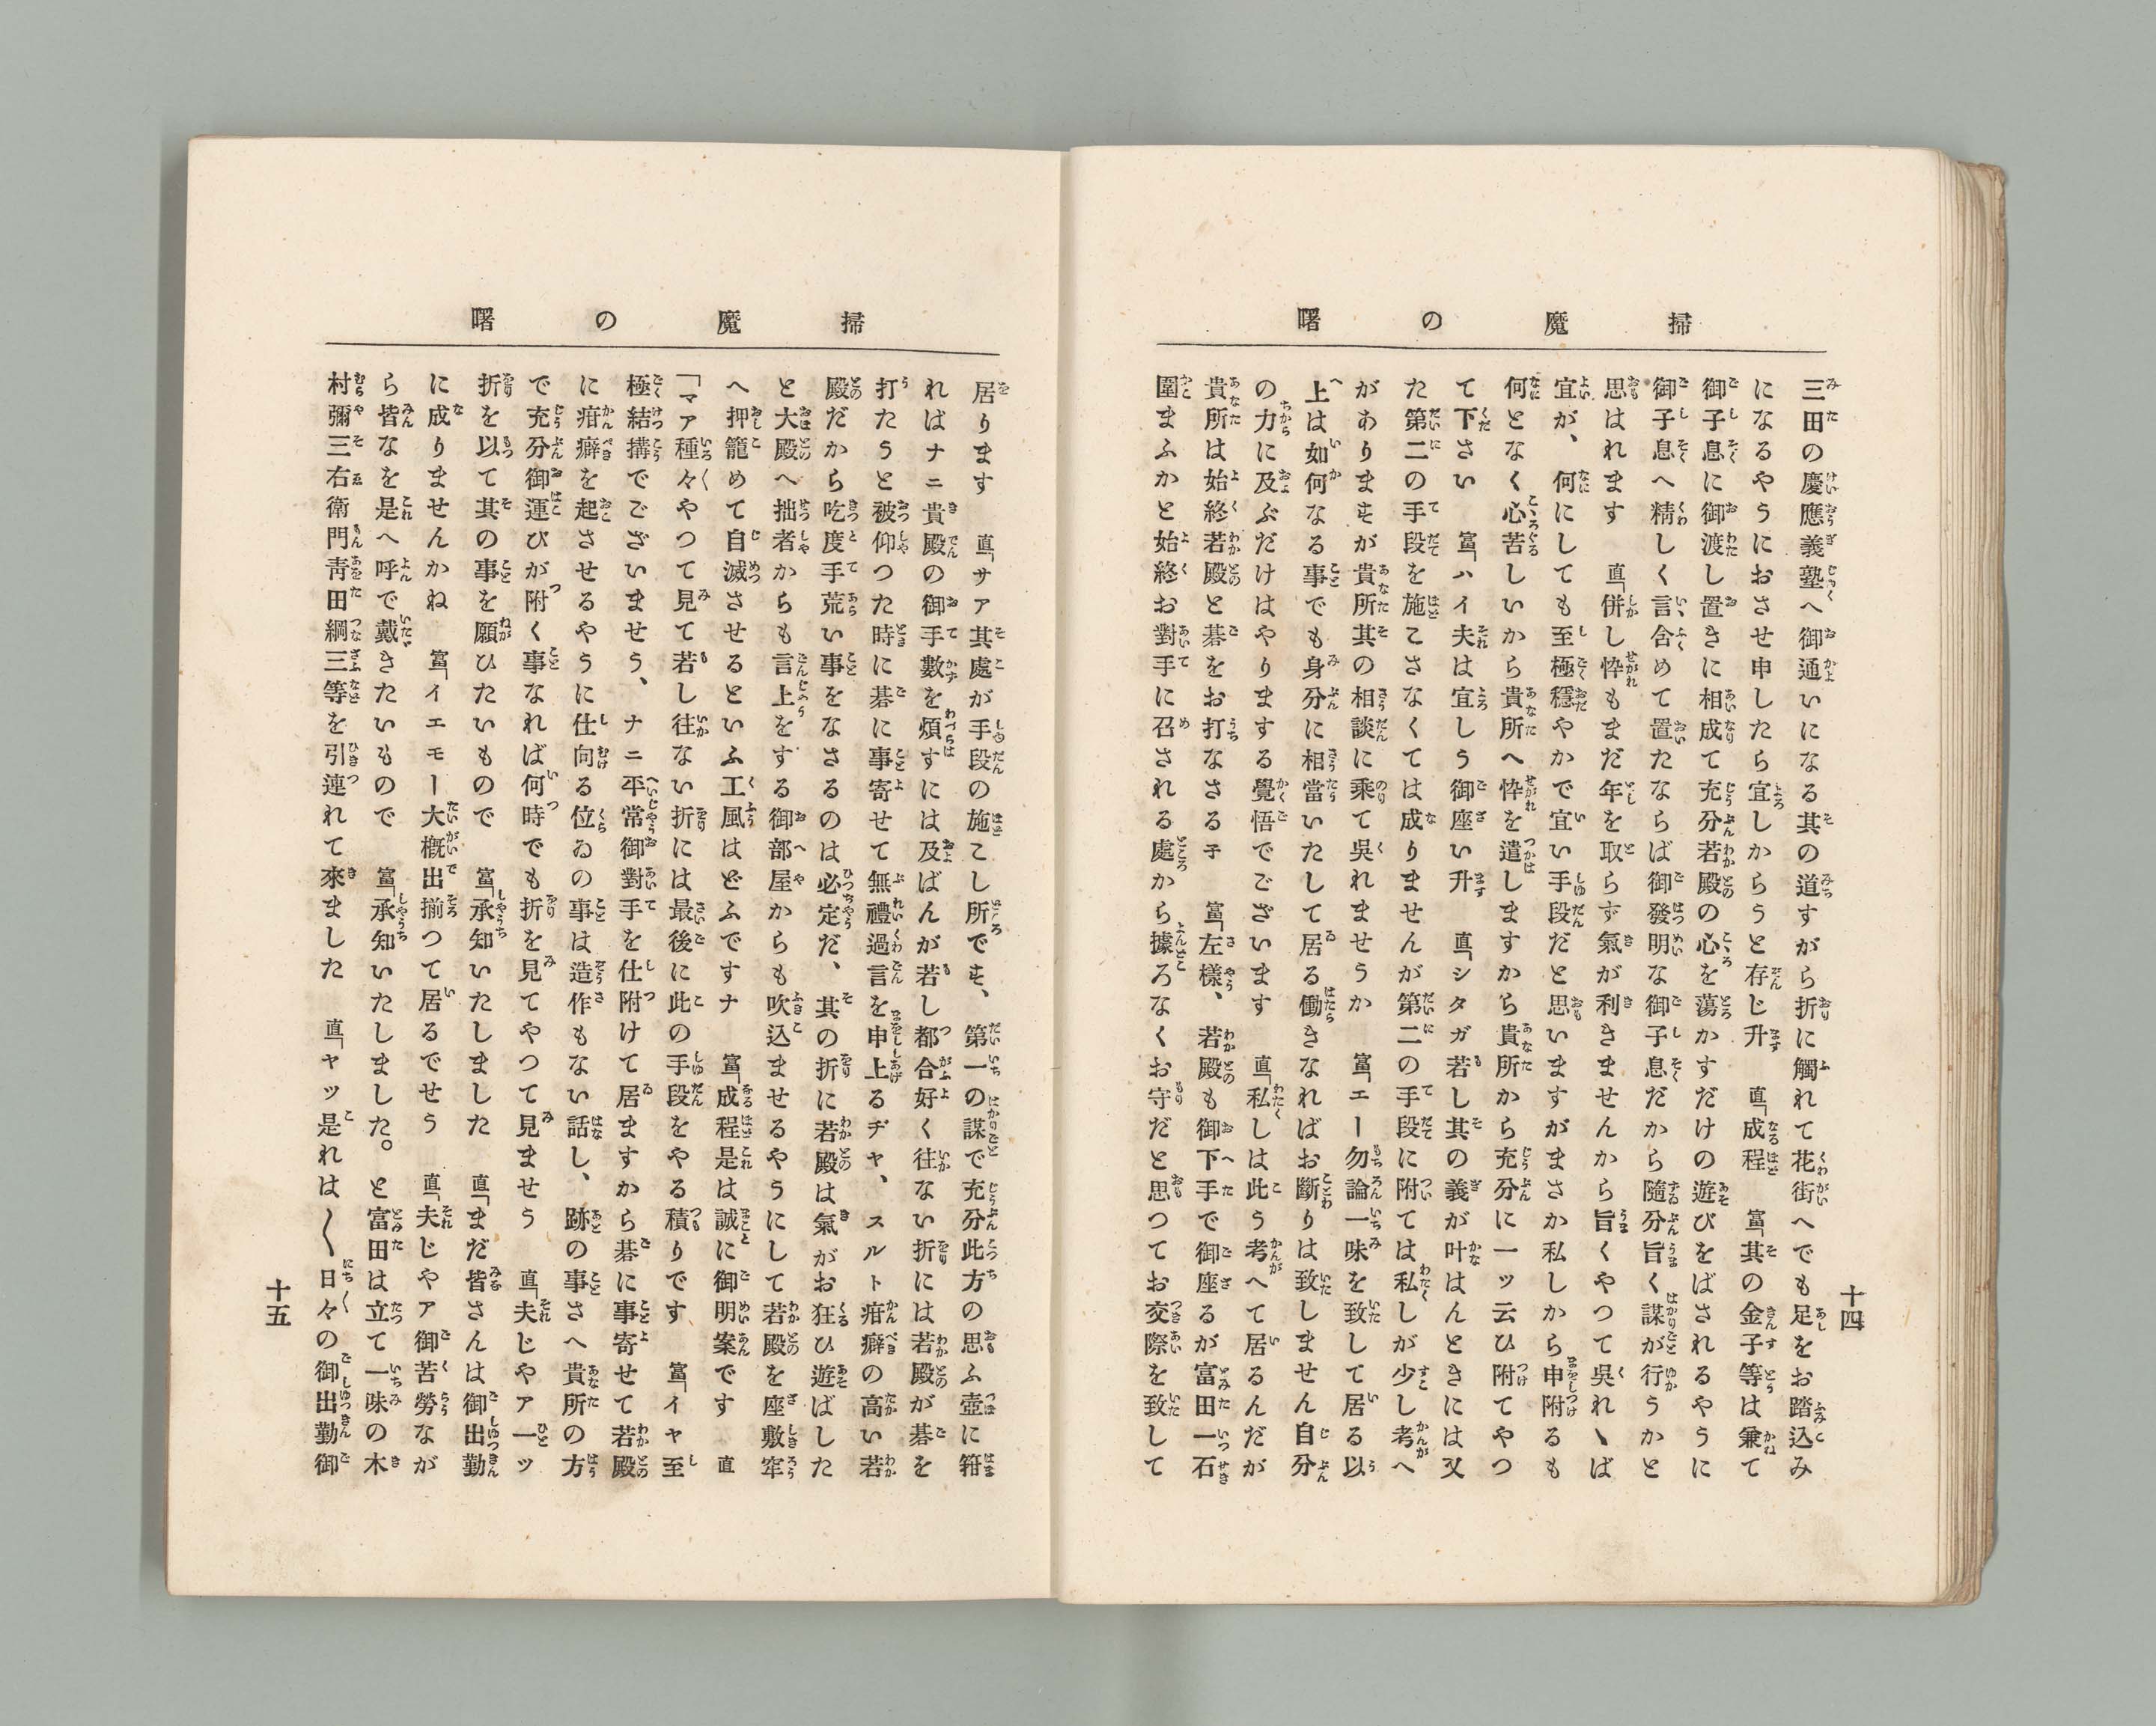 掃魔の曙
三田の慶應義塾へ御通いになる其の道すがら折に觸れて花街へでも足をお踏込み
になるやうにおさせ申したら宜しからうと存じ升　直「成程　富「其の金子等は兼て
御子息に御渡し置きに相成て充分若殿の心を蕩かすだけの遊びをばされるやうに
御子息へ精しく言含めて置たならば御發明な御子息だから隨分旨く謀が行うかと
思はれます　直「併し悴もまだ年を取らず氣が利きませんから旨くやつて呉れゝば
宜が、何にしても至極穩やかで宜い手段だと思いますがまさか私しから申附るも
何となく心苦しいから貴所へ悴を遣しますから貴所から充分に一ッ云ひ附てやつ
て下さい　富「ハイ夫は宜しう御座い升　直「シタガ若し其の義が叶はんときには又
た第二の手段を施こさなくては成りませんが第二の手段に附ては私しが少し考へ
がありまするが貴所其の相談に乘て呉れませうか　富「エー勿論一味を致して居る以
上は如何なる事でも身分に相當いたして居る働きなればお斷りは致しません自分
の力に及ぶだけはやりまする覺悟でございます　直「私しは此う考へて居るんだが
貴所は始終若殿と碁をお打なさる子　富「左樣、若殿も御下手で御座るが富田一石
圍まふかと始終お對手に召される處から據ろなくお守だと思つてお交際を致して
十四
掃魔の曙
居ります　直「サア其處が手段の施こし所でも、第一の謀で充分此方の思ふ壺に箝
ればナニ貴殿の御手數を煩すには及ばんが若し都合好く往ない折には若殿が碁を
打たうと被仰つた時に碁に事寄せて無禮過言を申上るヂャ、スルト疳癖の高い若
殿だから吃度手荒い事をなさるのは必定だ、其の折に若殿は氣がお狂ひ遊ばした
と大殿へ拙者からも言上をする御部屋からも吹込ませるやうにして若殿を座敷牢
へ押籠めて自滅させるといふ工風はどふですナ　富「成程是は誠に御明案です　直
「マア種々やつて見て若し往ない折には最後に此の手段をやる積りです　富「イヤ至
極結搆でございませう、ナニ平常御對手を仕附けて居ますから碁に事寄せて若殿
に疳癖を起させるやうに仕向る位ゐの事は造作もない話し、跡の事さへ貴所の方
で充分御運びが附く事なれば何時でも折を見てやつて見ませう　直「夫じやア一ッ
折を以て其の事を願ひたいもので　富「承知いたしました　直「まだ皆さんは御出勤
に成りませんかね　富「イエモー大概出揃つて居るでせう　直「夫じやア御苦勞なが
ら皆なを是へ呼で戴きたいもので　富「承知いたしました。と富田は立て一味の木
村彌三右衛門靑田綱三等を引連れて來ました　直「ヤッ是れは〱日々の御出勤御
十五